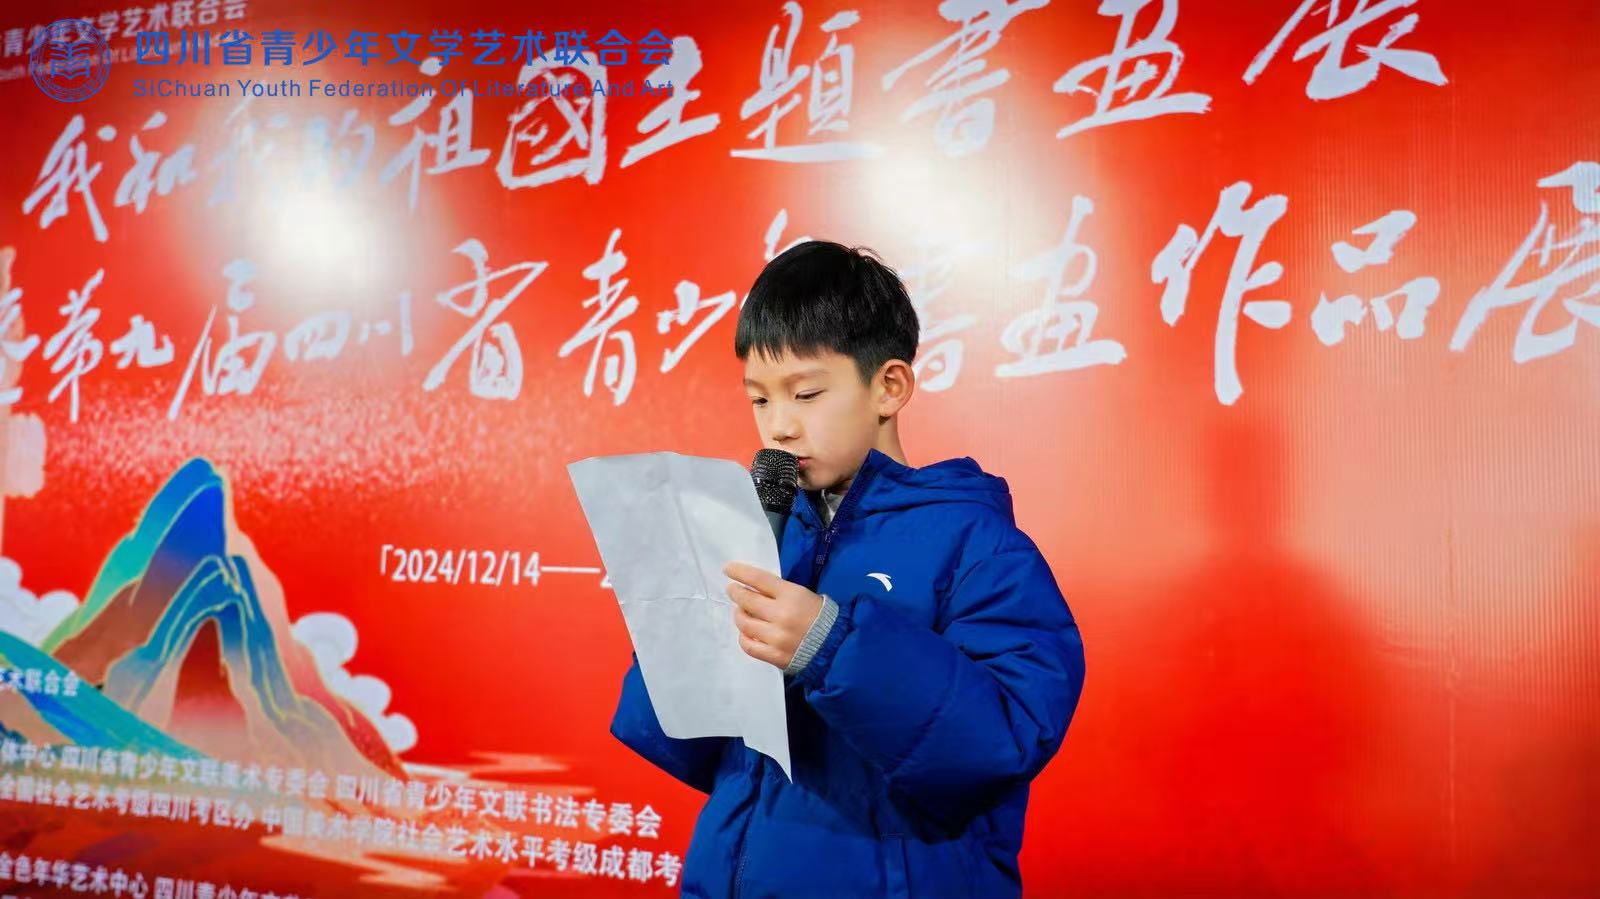 青少年文学艺术联合会
四川省青少年文学艺术联合会
SiChuan Youth Federation Of Literature And Art
我和我的祖國主题書画展
第九届四川省青少年書画作品展
「2024/12/14——
艺术联合会
体中心 四川省青少年文联美术专委会 四川省青少年文联书法专委会
全国社会艺术考级四川考区办 中国美术学院社会艺术水平考级成都考
金色年华艺术中心 四川青少年文艺